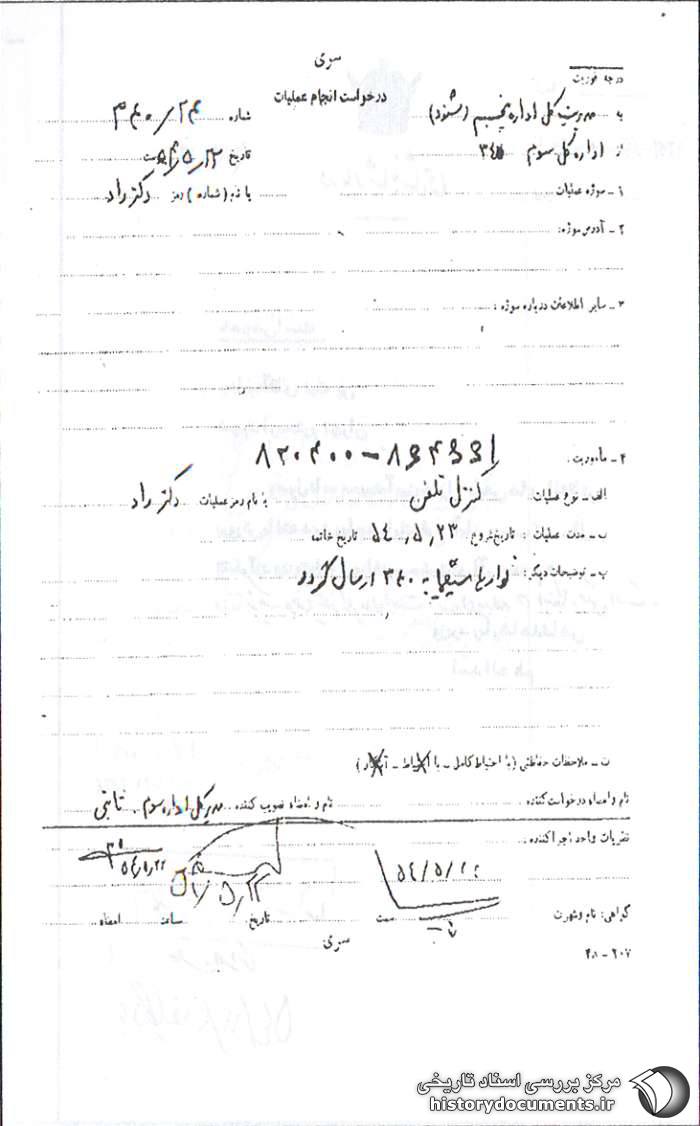 سری
درجه فوریت
درخواست انجام عملیات
به مدیریت کل اداره پنجم (شنود) شماره ۳۴۰/۲۴
از اداره کل سوم ۳۴۰ تاریخ
۱ – سوژه عملیات با نام (شماره) رمز دکتر راد
۲ – آدرس سوژه:
۳ – سایر اطلاعات درباره سوژه:
۴ – مأموریت
الف – نوع عملیات: کنترل تلفن با نام رمز عملیات دکتر راد
ب – مدت عملیات: تاریخ شروع ۵۴٫۵٫۲۳ تاریخ خاتمه
پ – توضیحات دیگر: نوارها مستقیماً به ۳۴۰ ارسال گردد
ت – ملاحظات حفاظتی (با احتیاط کامل – با احتیاط – آشکار)
نام و امضاء درخواست کننده نام و امضاء تصویب کننده مدیر کل اداره سوم. ثابتی
نظریات واحد اجرا کننده:
۵۴/۵/۲۲
گواهی: نام و شهرت سمت تاریخ ساعت امضاء
سری
۲۰۷ – ۴۰۱
مرکز بررسی اسناد تاریخی
historydocuments.ir